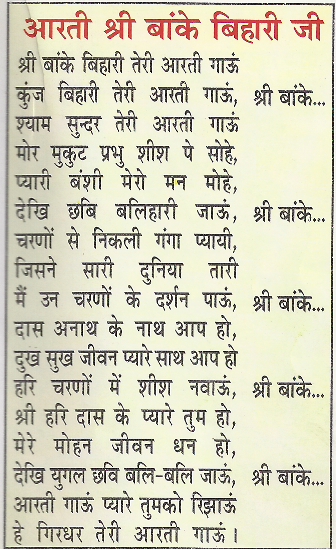 आरती श्री बांके बिहारी जी
श्री बांके बिहारी तेरी आरती गाऊं
कुंज बिहारी तेरी आरती गाऊं, श्री बांके...
श्याम सुन्दर तेरी आरती गाऊं
मोर मुकुट प्रभु शीश पे सोहे,
प्यारी बंशी मेरो मन मोहे,
देखि छबि बलिहारी जाऊं, श्री बांके...
चरणों से निकली गंगा प्यायी,
जिसने सारी दुनिया तारी
मैं उन चरणों के दर्शन पाऊं, श्री बांके...
दास अनाथ के नाथ आप हो,
दुख सुख जीवन प्यारे साथ आप हो
हरि चरणों में शीश नवाऊं, श्री बांके...
श्री हरि दास के प्यारे तुम हो,
मेरे मोहन जीवन धन हो,
देखि युगल छवि बलि-बलि जाऊं, श्री बांके...
आरती गाऊं प्यारे तुमको रिझाऊं
हे गिरधर तेरी आरती गाऊं ।